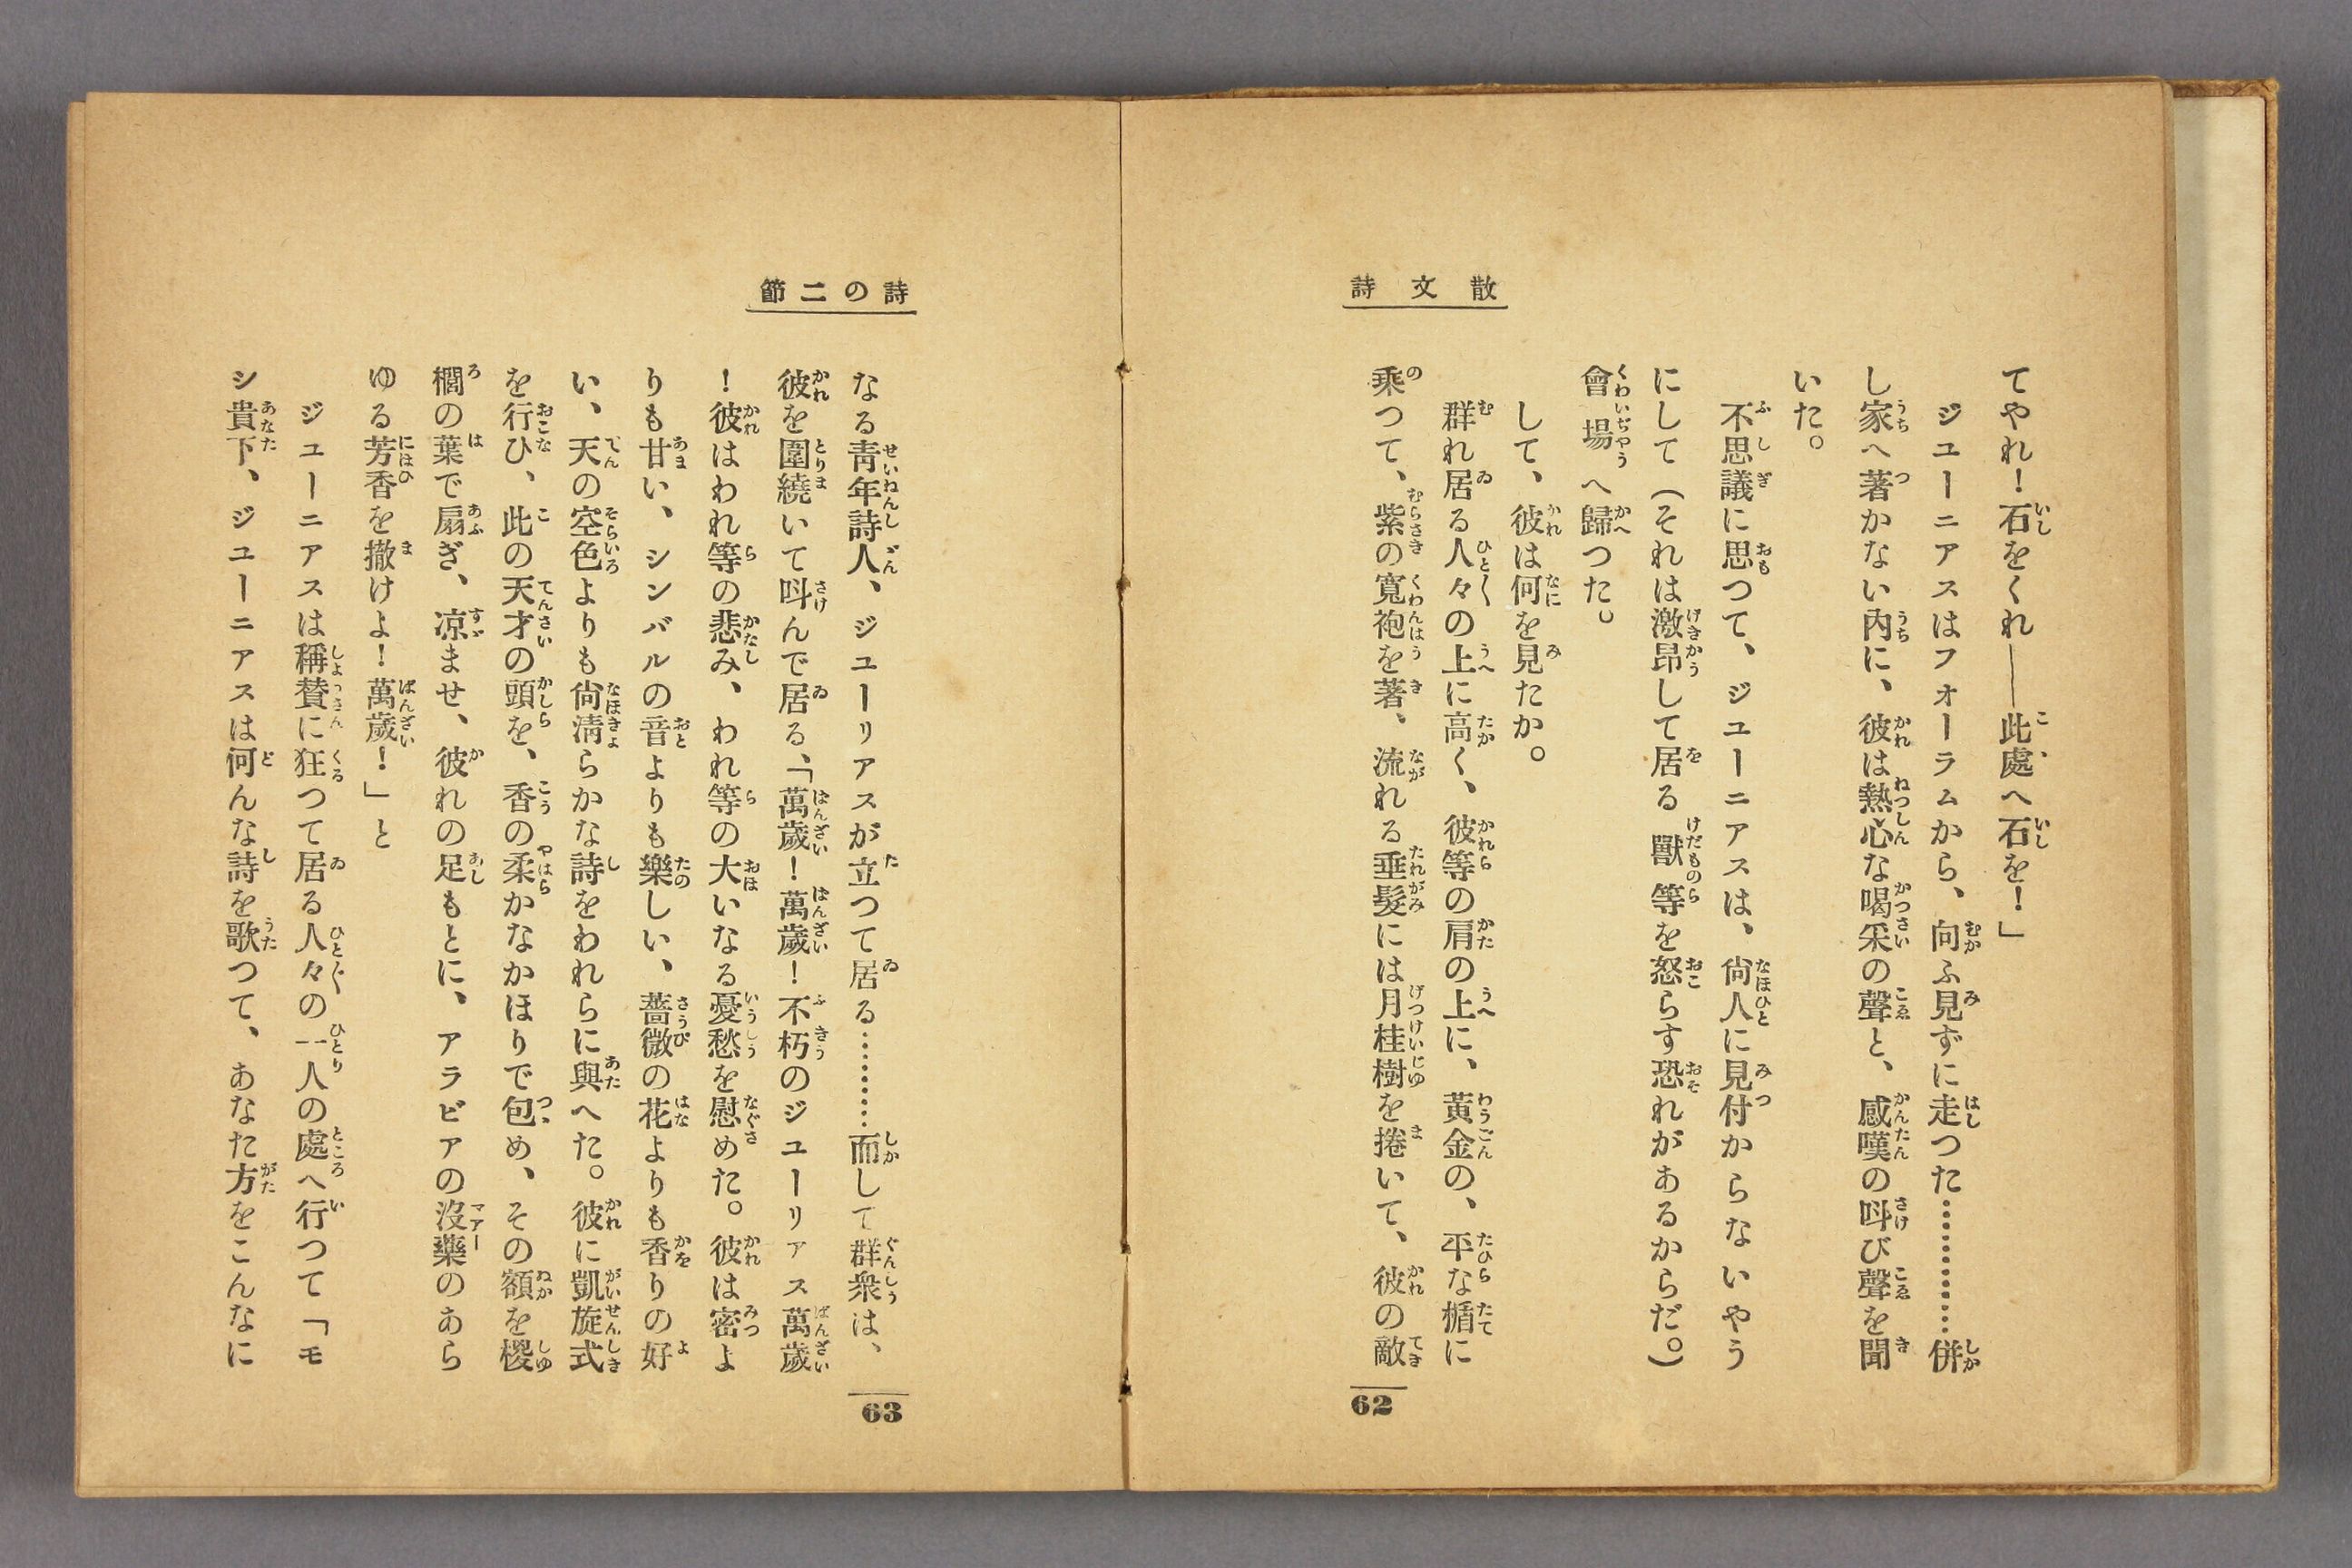 散文詩
てやれ！石をくれ――此處へ石を！」
ジユーニアスはフオーラムから、向ふ見ずに走つた…………併
し家へ著かない内に、彼は熱心な喝采の聲と、感嘆の呌び聲を聞
いた。
不思議に思つて、ジユーニアスは、尙人に見付からないやう
にして（それは激昂して居る獸等を怒らす恐れがあるからだ。）
會場へ歸つた。
して、彼は何を見たか。
群れ居る人々の上に高く、彼等の肩の上に、黄金の、平な楯に
乘つて、紫の寬袍を著、流れる垂髮には月桂樹を捲いて、彼の敵
62
詩の二節
なる靑年詩人、ジユーリアスが立つて居る………而して群衆は、
彼を圍繞いて呌んで居る、「萬歲！萬歲！不朽のジユーリアス萬歲
！彼はわれ等の悲み、われ等の大いなる憂愁を慰めた。彼は密よ
りも甘い、シンバルの音よりも樂しい、薔薇の花よりも香りの好
い、天の空色よりも尙淸らかな詩をわれらに與へた。彼に凱旋式
を行ひ、此の天才の頭を、香の柔かなかほりで包め、その額を椶
櫚の葉で扇ぎ、凉ませ、彼れの足もとに、アラビアの沒藥のあら
ゆる芳香を撤けよ！萬歲！」と
ジユーニアスは稱賛に狂つて居る人々の一人の處へ行つて「モ
シ貴下、ジユーニアスは何んな詩を歌つて、あなた方をこんなに
63